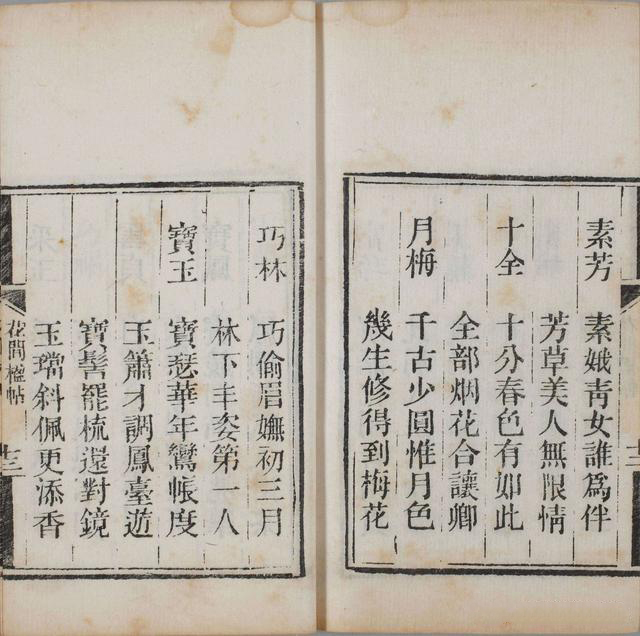 素芳 素娥青女誰爲伴
芳草美人無限情
十全 十分春色有如此
全部烟花合讓卿
月梅 千古少圓惟月色
幾生修得到梅花
巧林 巧偷眉嫵初三月
林下丰姿第一人
寶玉 寶瑟華年鸞帳度
玉簫才調鳳臺遊
寶髻罷梳還對鏡
玉璫斜佩更添香
花間楹帖 十二